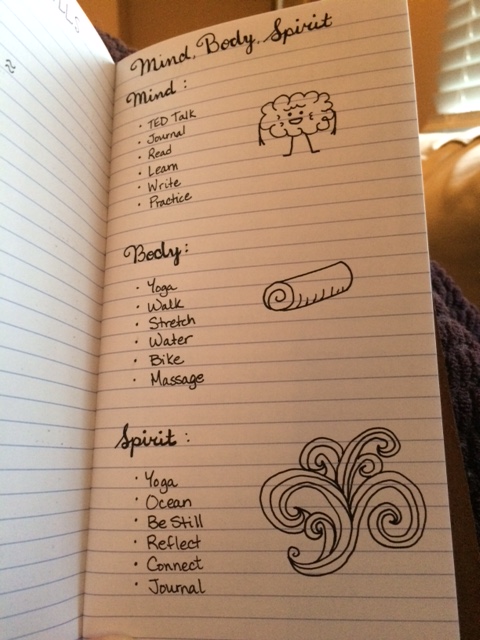 Mind, Body, Spirit
Mind:
· TED Talk
· Journal
· Read
· Learn
· Write
· Practice
Body:
· Yoga
· Walk
· Stretch
· Water
· Bike
· Massage
Spirit:
· Yoga
· Ocean
· Be Still
· Reflect
· Connect
· Journal